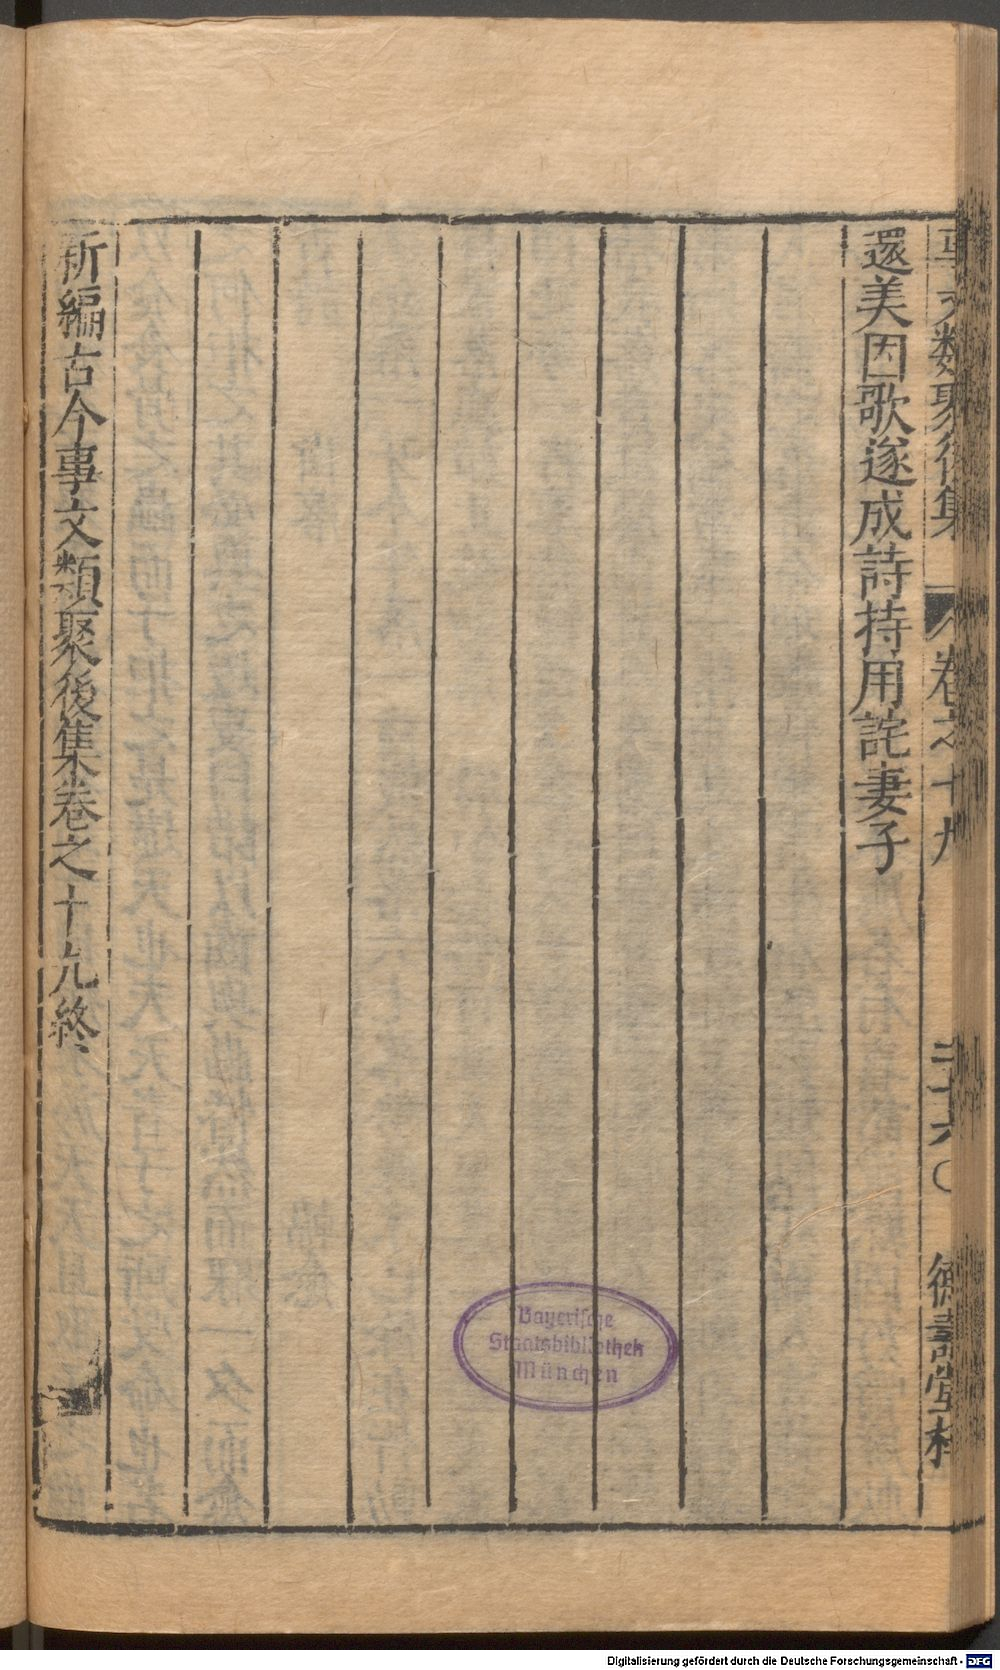 事文類聚後集 卷之十九 二十六 德壽堂梓
還美因歌遂成詩持用詫妻子
新編古今事文類聚後集卷之十九終
Bayerische
Staatsbibliothek
München
Digitalisierung gefördert durch die Deutsche Forschungsgemeinschaft - DFG